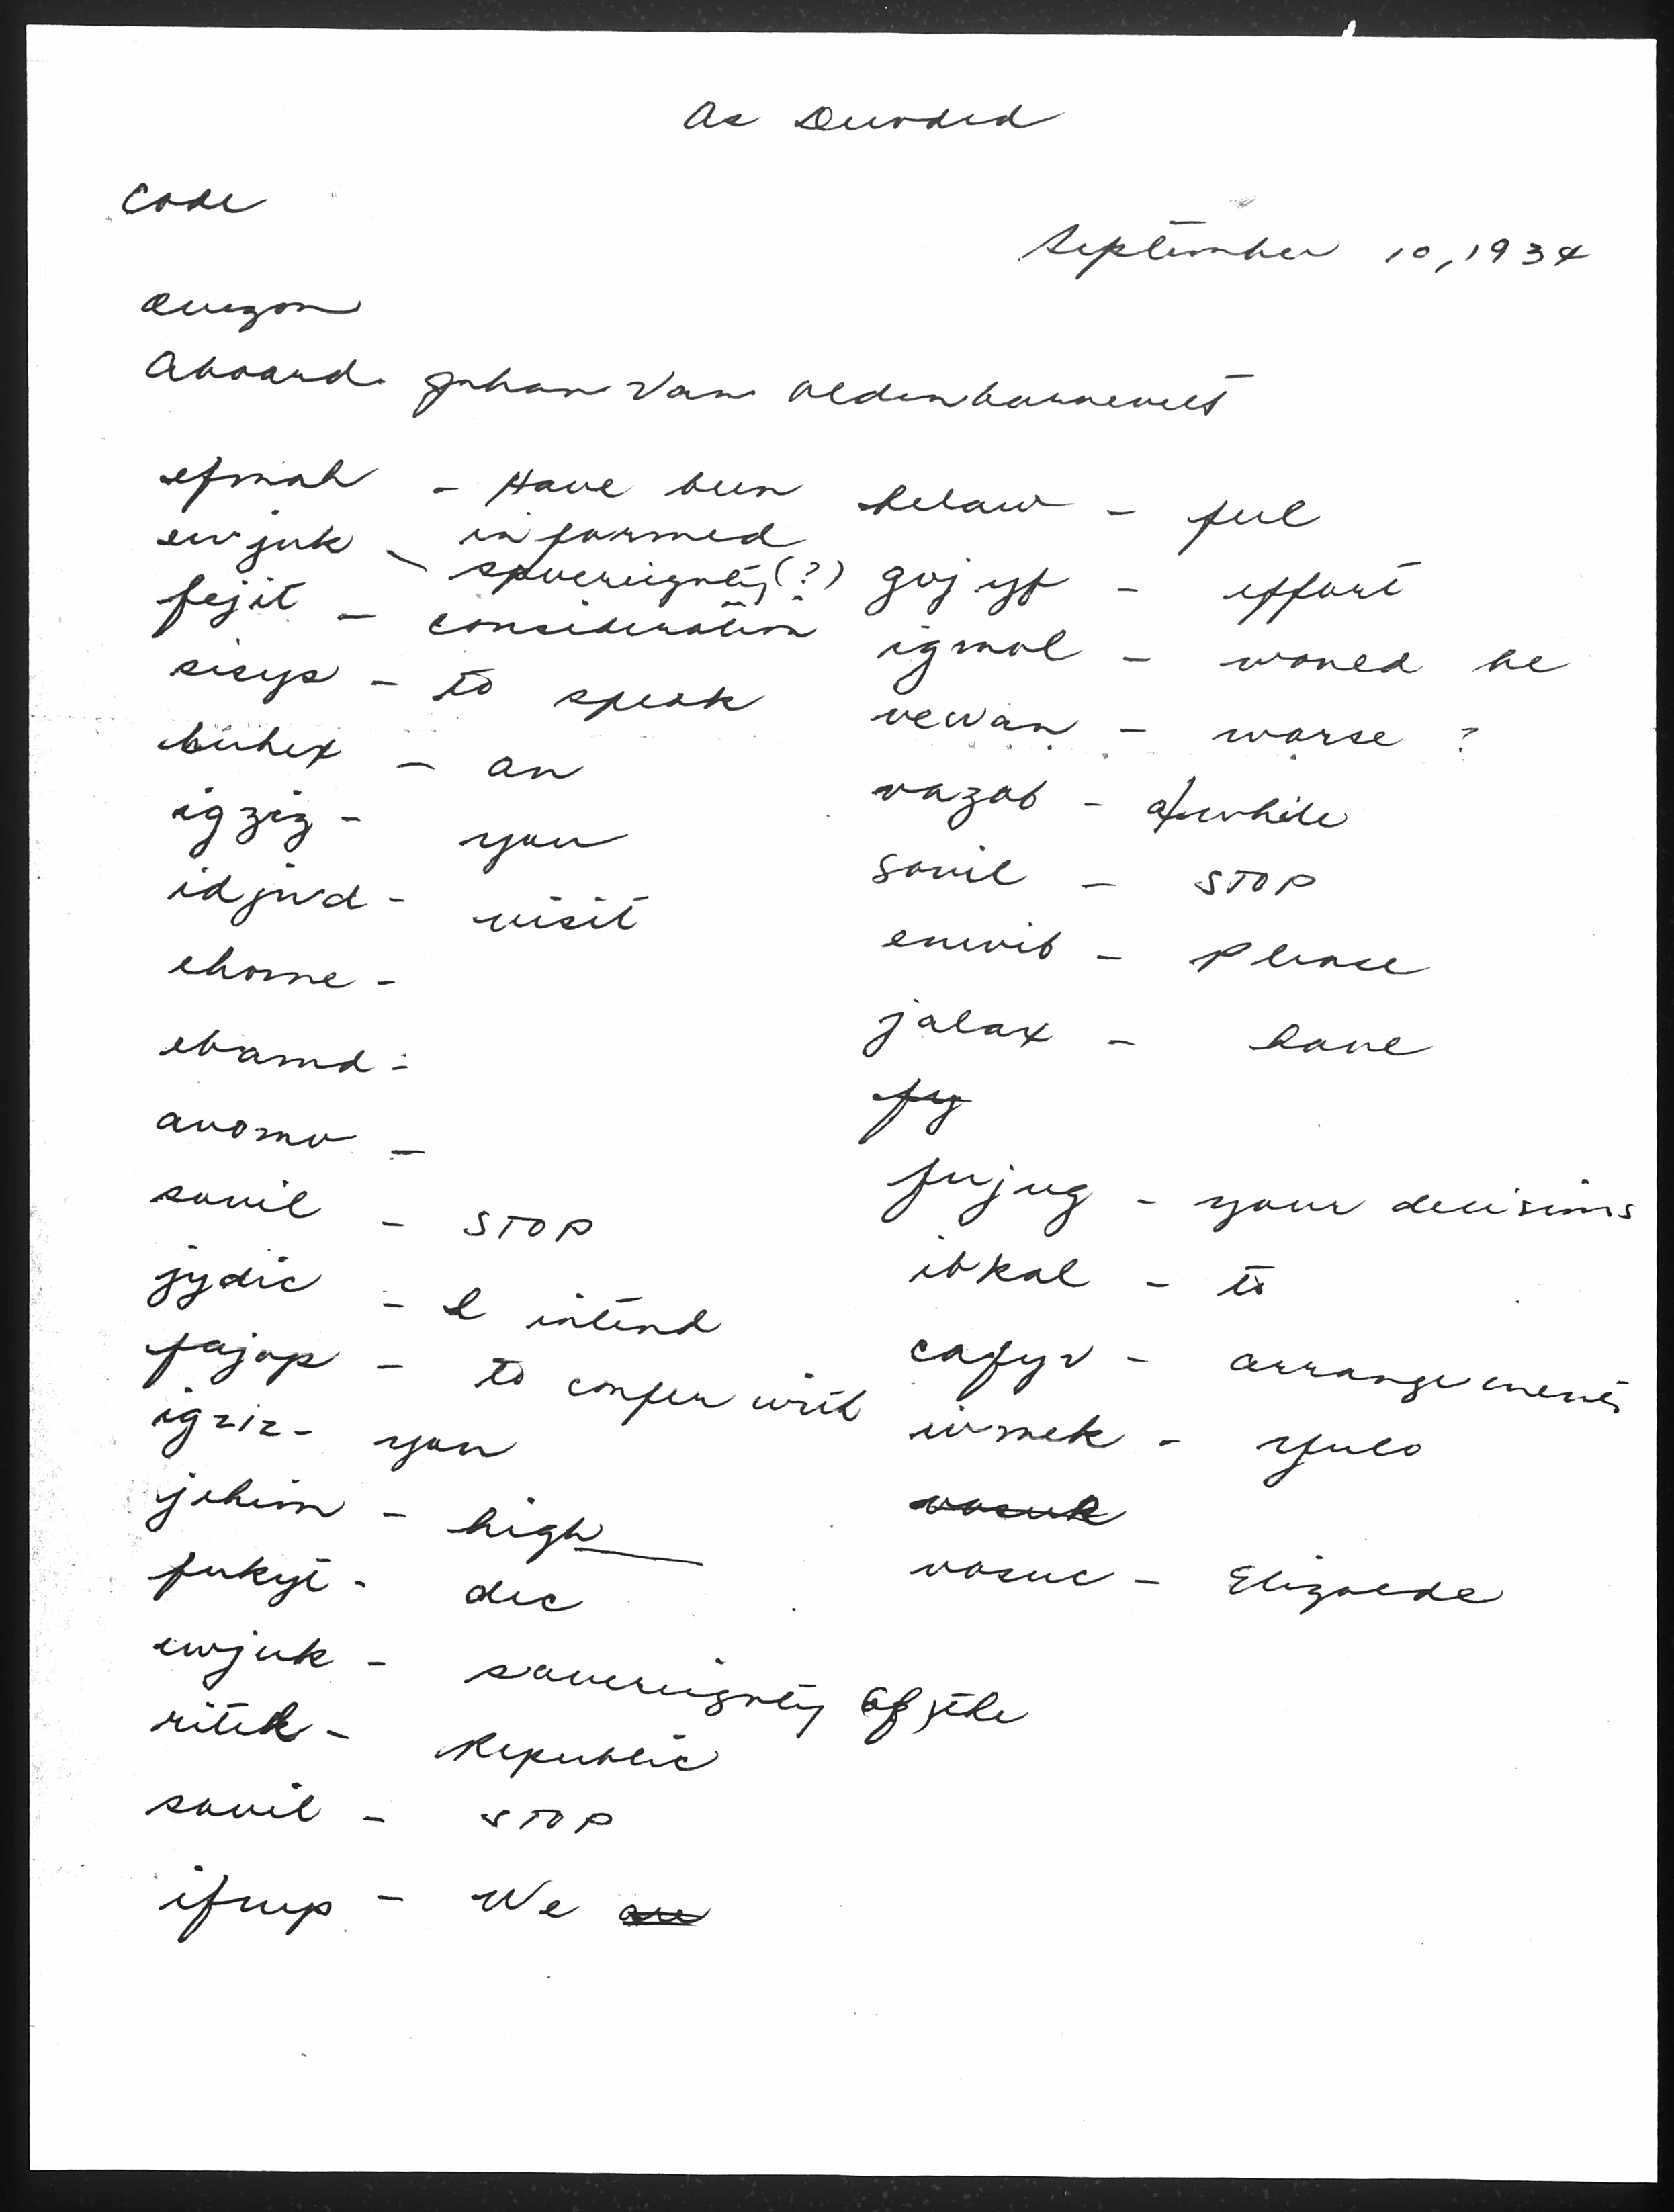 As Decoded
Code
September 10, 1934
Quezon
Aboard Johan Van Oldenbarnevelt
efmah - Have been informed
ewjuk - sovereignty (?)
fejit - consideration
sisys - to speak
buhex - an
igziz - you
idjwd - visit
ehome -
ebamd -
avomv -
sovil - STOP
jydic - I intend
fajop - to confer with
igziz - you
jehim - high
fukyt - dec
ewjuk - sovereignty of the
ritek - Republic
sovil - STOP
ifrup - We are
helaw - feel
gojyf - effort
igmol - would be
vewan - worse ?
vazob - awhile
sovil - STOP
enwib - Please
jalax - have
fy
fujug - your decisions
ibkal - to
cafyv - arrangements
ivmek - Yulo
vosuk
vosuc - Elizalde